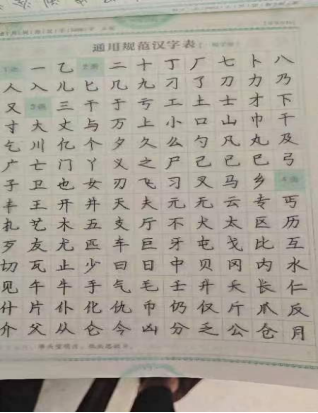 通用规范汉字表：
1画 一 乙 2画 二 十 丁 厂 七 卜 八
人 入 儿 匕 几 九 刁 了 刀 力 乃
又 3画 三 干 于 亏 工 土 士 才 下
寸 大 丈 与 万 上 小 口 山 巾 千
乞 川 亿 个 夕 久 么 勺 凡 丸 及
广 亡 门 丫 义 之 尸 己 已 巳 弓
子 卫 也 女 刃 飞 习 叉 马 乡 4画
丰 王 开 井 天 夫 元 无 云 专 丐
扎 艺 木 五 支 厅 不 犬 太 区 历
歹 友 尤 匹 车 巨 牙 屯 戈 比 互
切 瓦 止 少 曰 日 中 贝 冈 内 水
见 午 牛 手 气 毛 壬 升 夭 长 仁
什 片 仆 化 仇 币 仍 仅 斤 爪 反
介 父 从 仑 今 凶 分 乏 公 仓 月